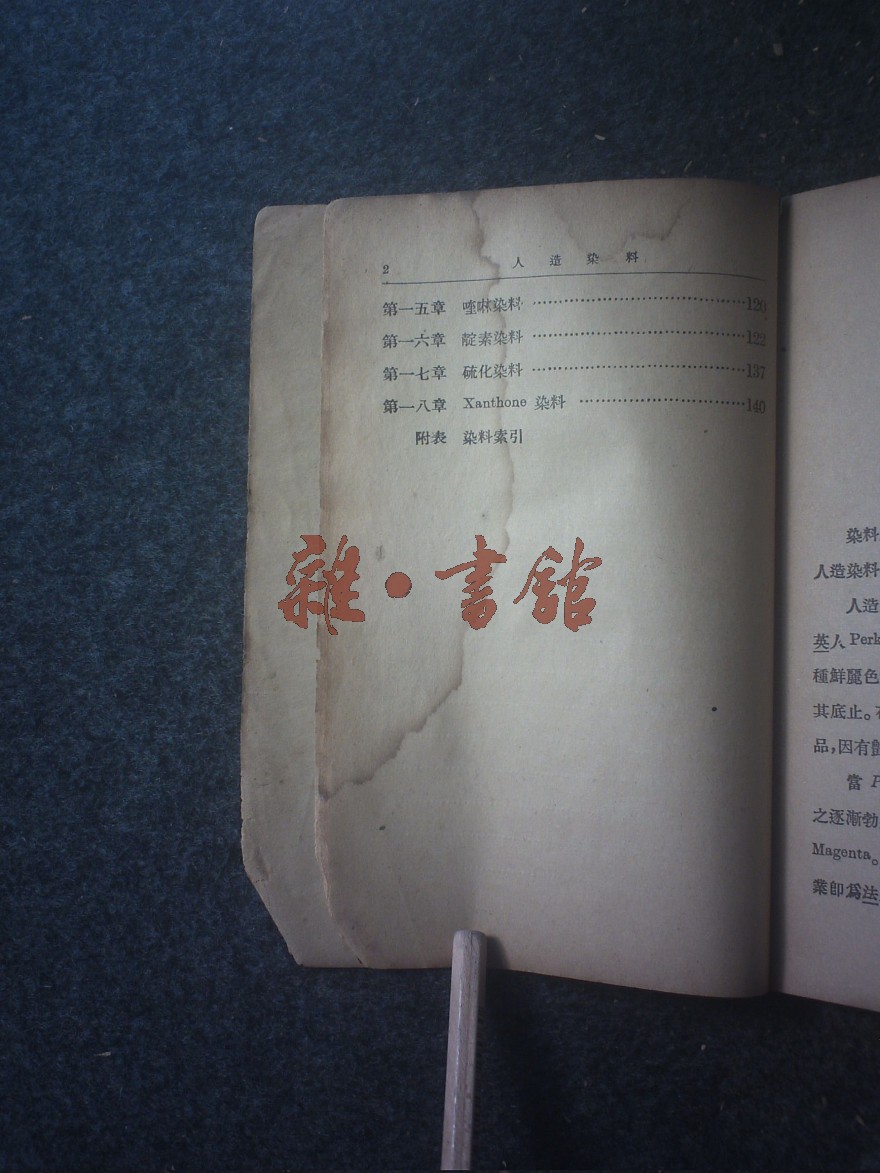 2 人造染料
第一五章 喹啉染料 ……………………………………120
第一六章 靛素染料 ……………………………………122
第一七章 硫化染料 ……………………………………137
第一八章 Xanthone 染料 ……………………………140
附表 染料索引
雜·書館
染料
人造染料
人造
英人 Perk
種鮮麗色
其底止。
品,因有
當 P
之逐漸勃
Magenta。
業卽爲法